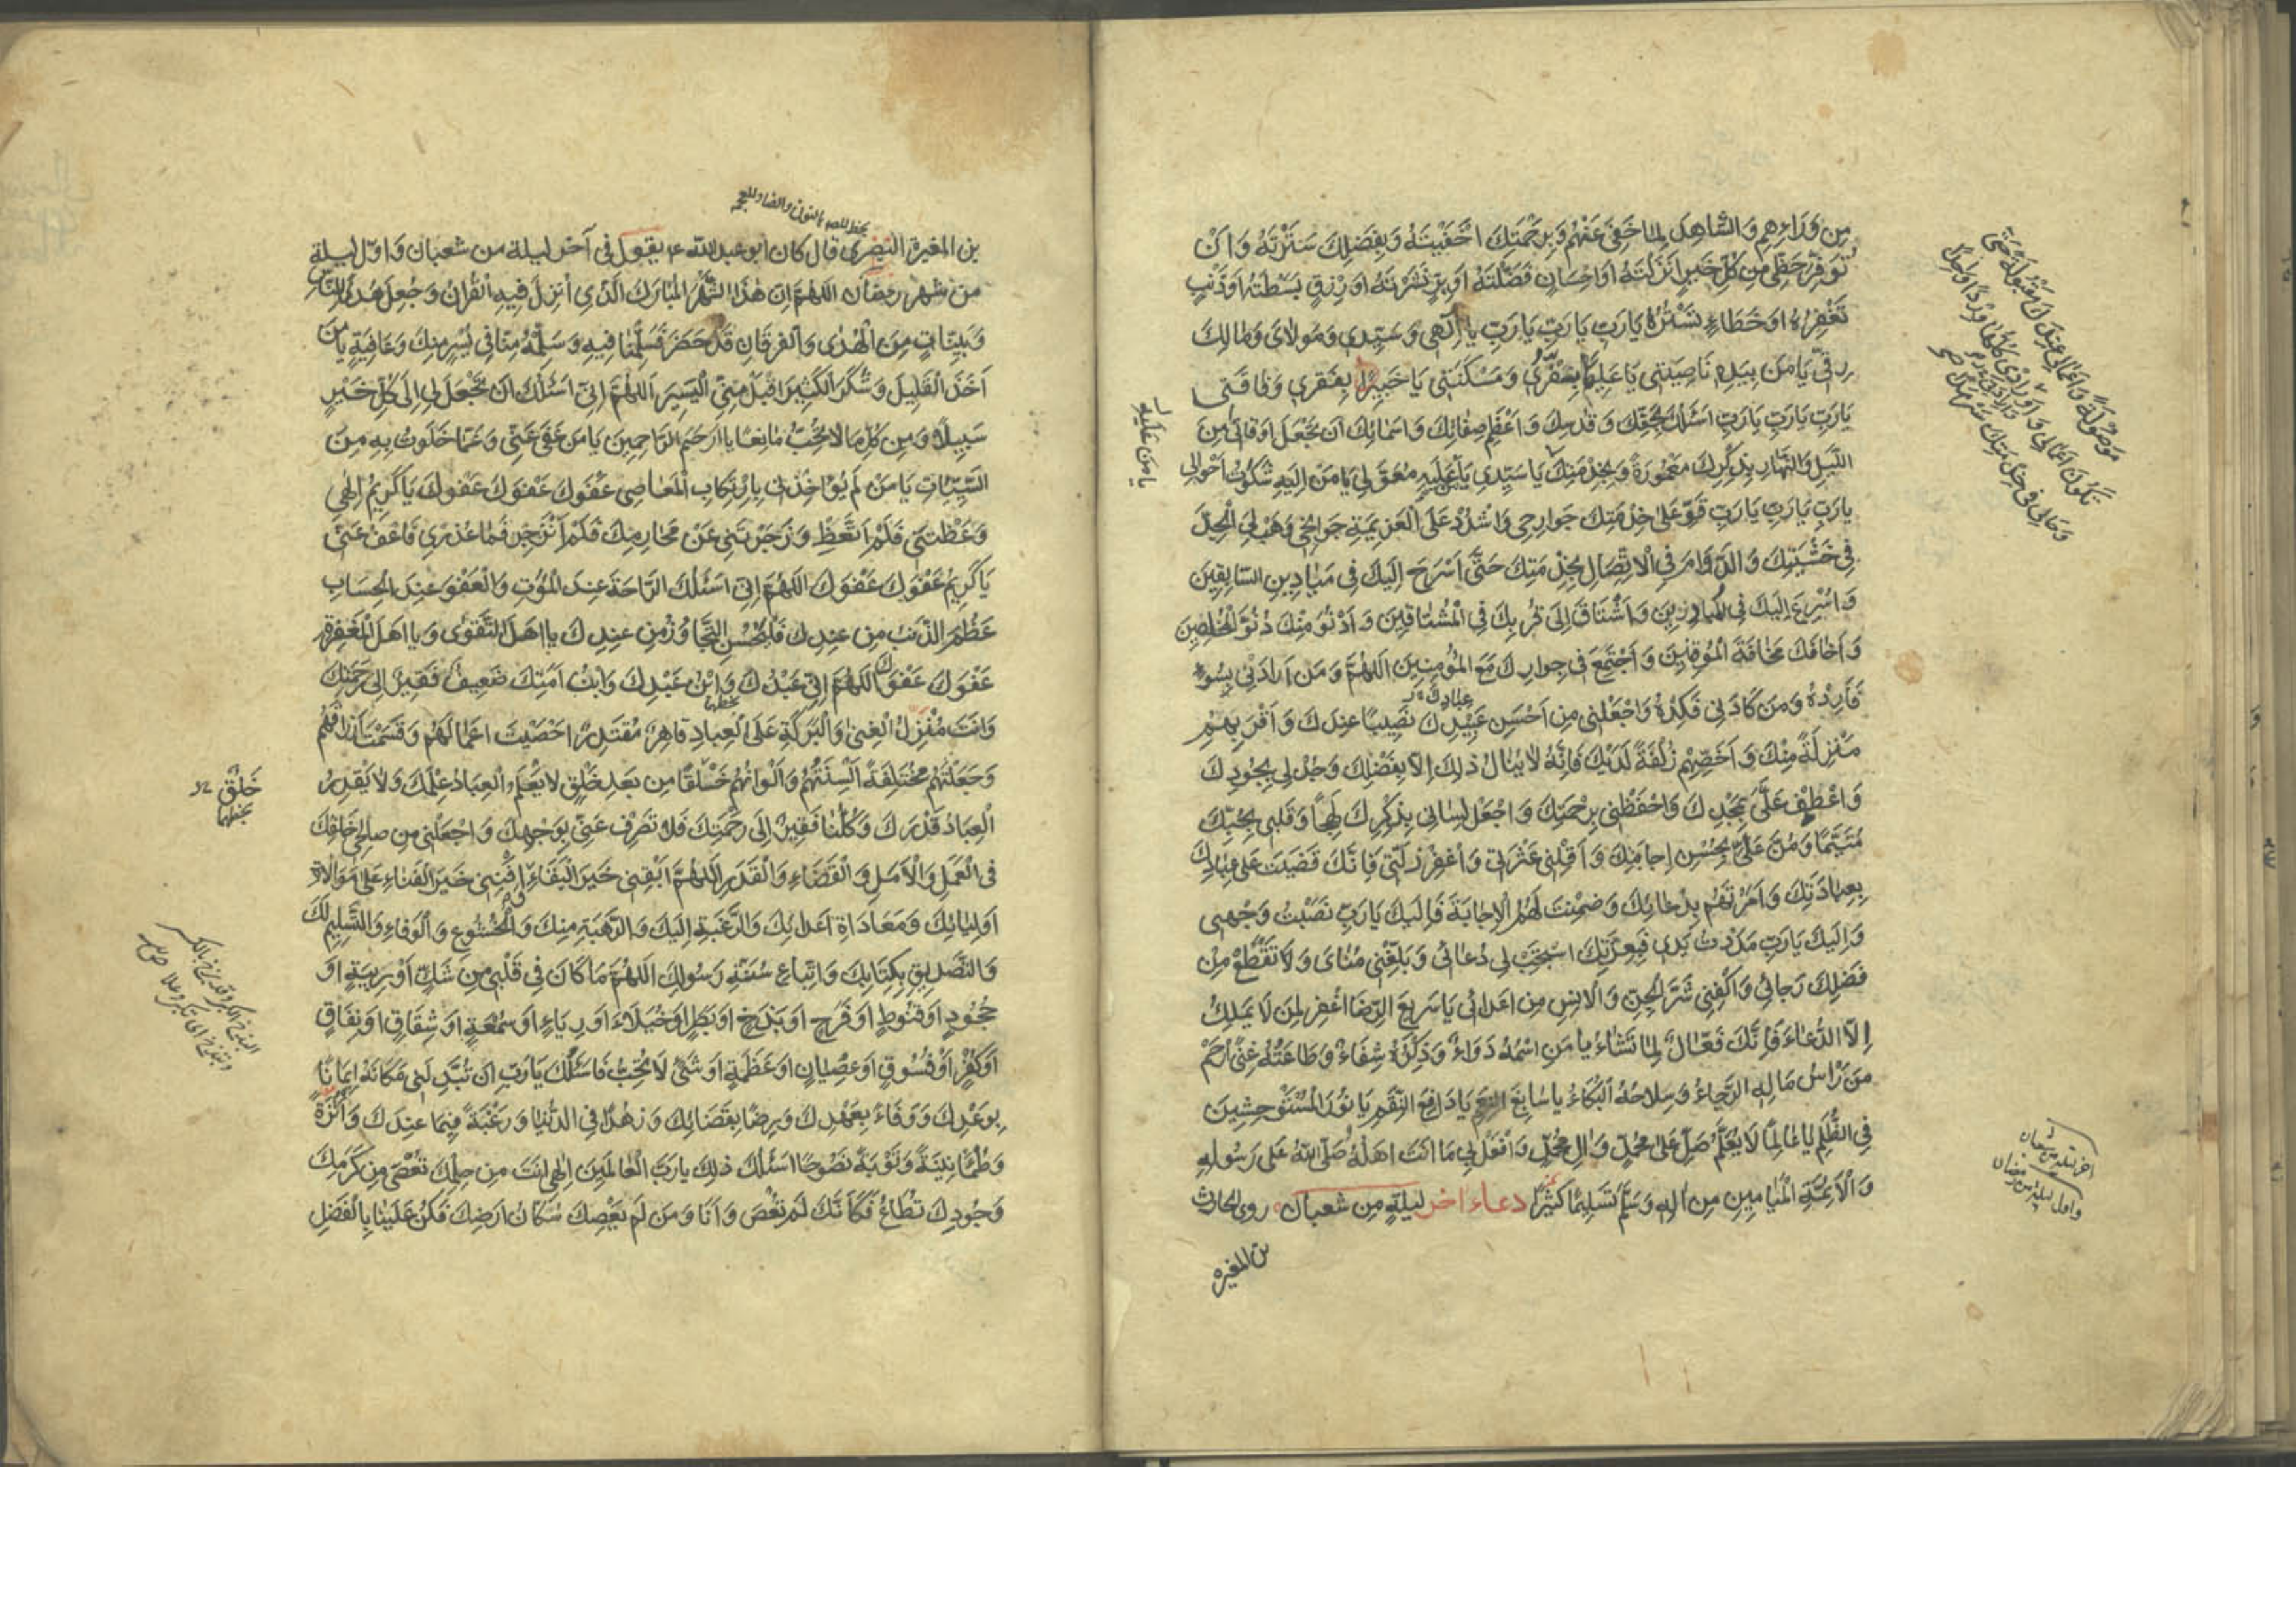 مِن وَرَاءِهِم وَالشَّاهِدَ لِمَا خَفِيَ عَنْهُمْ وَبِرَحْمَتِكَ اَخْفَيْتَهُ وَبِفَضْلِكَ سَتَرْتَهُ وَاَنْ
تُوَفِّرَ حَظِّي مِن كُلِّ خَيْرٍ اَنْزَلْتَهُ اَوْ اِحْسَانٍ فَضَّلْتَهُ اَوْ بِرٍّ نَشَرْتَهُ اَوْ رِزْقٍ بَسَطْتَهُ اَوْ ذَنْبٍ
تَغْفِرُهُ اَوْ خَطَاءٍ تَسْتُرُهُ يَارَبِّ يَارَبِّ يَارَبِّ يَا اِلٰهِي وَسَيِّدِي وَمَوْلَايَ وَمَالِكَ
رِقِّي يَا مَن بِيَدِهِ نَاصِيَتِي يَا عَلِيمًا بِضُرِّي وَمَسْكَنَتِي يَا خَبِيرًا بِفَقْرِي وَفَاقَتِي
يَارَبِّ يَارَبِّ يَارَبِّ اَسْئَلُكَ بِحَقِّكَ وَقُدْسِكَ وَاَعْظَمِ صِفَاتِكَ وَاَسْمَائِكَ اَنْ تَجْعَلَ اَوْقَاتِي مِنَ
اللَّيْلِ وَالنَّهَارِ بِذِكْرِكَ مَعْمُورَةً وَبِخِدْمَتِكَ يَا سَيِّدِي يَا مَنْ عَلَيْهِ مُعَوَّلِي يَا مَنْ اِلَيْهِ شَكَوْتُ اَحْوَالِي
يَارَبِّ يَارَبِّ يَارَبِّ قَوِّ عَلَى خِدْمَتِكَ جَوَارِحِي وَاشْدُدْ عَلَى الْعَزِيمَةِ جَوَانِحِي وَهَبْ لِيَ الْجِدَّ
فِي خَشْيَتِكَ وَالدَّوَامَ فِي الْاِتِّصَالِ بِخِدْمَتِكَ حَتَّى اَسْرَحَ اِلَيْكَ فِي مَيَادِينِ السَّابِقِينَ
وَاُسْرِعَ اِلَيْكَ فِي الْمُبَادِرِينَ وَاَشْتَاقَ اِلَى قُرْبِكَ فِي الْمُشْتَاقِينَ وَاَدْنُوَ مِنْكَ دُنُوَّ الْمُخْلِصِينَ
وَاَخَافَكَ مَخَافَةَ الْمُوقِنِينَ وَاَجْتَمِعَ فِي جِوَارِكَ مَعَ الْمُؤْمِنِينَ اللّٰهُمَّ وَمَن اَرَادَنِي بِسُوءٍ
عِبَادِكَ
فَاَرِدْهُ وَمَن كَادَنِي فَكِدْهُ وَاجْعَلْنِي مِن اَحْسَنِ عَبِيدِكَ نَصِيبًا عِنْدَكَ وَاَقْرَبِهِم
مَنْزِلَةً مِنْكَ وَاَخَصِّهِمْ زُلْفَةً لَدَيْكَ فَاِنَّهُ لَا يُنَالُ ذٰلِكَ اِلَّا بِفَضْلِكَ وَجُدْ لِي بِجُودِكَ
وَاعْطِفْ عَلَيَّ بِمَجْدِكَ وَاحْفَظْنِي بِرَحْمَتِكَ وَاجْعَلْ لِسَانِي بِذِكْرِكَ لَهِجًا وَقَلْبِي بِحُبِّكَ
مُتَيَّمًا وَمُنَّ عَلَيَّ بِحُسْنِ اِجَابَتِكَ وَاَقِلْنِي عَثْرَتِي وَاغْفِرْ زَلَّتِي فَاِنَّكَ قَضَيْتَ عَلَى عِبَادِكَ
بِعِبَادَتِكَ وَاَمَرْتَهُمْ بِدُعَائِكَ وَضَمِنْتَ لَهُمُ الْاِجَابَةَ فَاِلَيْكَ يَارَبِّ نَصَبْتُ وَجْهِي
وَاِلَيْكَ يَارَبِّ مَدَدْتُ يَدِي فَبِعِزَّتِكَ اسْتَجِبْ لِي دُعَائِي وَبَلِّغْنِي مُنَايَ وَلَا تَقْطَعْ مِنْ
فَضْلِكَ رَجَائِي وَاكْفِنِي شَرَّ الْجِنِّ وَالْاِنْسِ مِن اَعْدَائِي يَا سَرِيعَ الرِّضَا اغْفِرْ لِمَنْ لَا يَمْلِكُ
اِلَّا الدُّعَاءَ فَاِنَّكَ فَعَّالٌ لِمَا تَشَاءُ يَا مَنِ اسْمُهُ دَوَاءٌ وَذِكْرُهُ شِفَاءٌ وَطَاعَتُهُ غِنًى اِرْحَمْ
مَنْ رَاْسُ مَالِهِ الرَّجَاءُ وَسِلَاحُهُ الْبُكَاءُ يَا سَابِغَ النِّعَمِ يَا دَافِعَ النِّقَمِ يَا نُورَ الْمُسْتَوْحِشِينَ
فِي الظُّلَمِ يَا عَالِمًا لَا يُعَلَّمُ صَلِّ عَلَى مُحَمَّدٍ وَآلِ مُحَمَّدٍ وَافْعَلْ بِي مَا اَنْتَ اَهْلُهُ صَلَّى اللّٰهُ عَلَى رَسُولِهِ
وَالْاَئِمَّةِ الْمَيَامِينِ مِن آلِهِ وَسَلَّمَ تَسْلِيمًا كَثِيرًا دعاء اخر ليلةٍ مِن شعبان روى الحارث
بن المغيرة
يَا مَن عَلَيْهِ
اخر ليلة من شعبان
واول ليلة من رمضان
بن المغيرة النضري قال كان ابو عبد الله ع يقول في آخر ليلة من شعبان وَاوّل ليلة
من شهر رمضان اَللّٰهُمَّ اِنَّ هٰذَا الشَّهْرَ الْمُبَارَكَ الَّذِي اُنْزِلَ فِيهِ الْقُرْآنُ وَجُعِلَ هُدًى لِلنَّاسِ
وَبَيِّنَاتٍ مِنَ الْهُدَى وَالْفُرْقَانِ قَدْ حَضَرَ فَسَلِّمْنَا فِيهِ وَسَلِّمْهُ مِنَّا فِي يُسْرٍ مِنْكَ وَعَافِيَةٍ يَا مَنْ
اَخَذَ الْقَلِيلَ وَشَكَرَ الْكَثِيرَ اقْبَلْ مِنِّي الْيَسِيرَ اَللّٰهُمَّ اِنِّي اَسْئَلُكَ اَنْ تَجْعَلَ لِي اِلَى كُلِّ خَيْرٍ
سَبِيلًا وَمِن كُلِّ مَا لَا تُحِبُّ مَانِعًا يَا اَرْحَمَ الرَّاحِمِينَ يَا مَن عَفَى عَنِّي وَعَمَّا خَلَوْتُ بِهِ مِنَ
السَّيِّئَاتِ يَا مَنْ لَمْ يُؤَاخِذْنِي بِارْتِكَابِ الْمَعَاصِي عَفْوَكَ عَفْوَكَ عَفْوَكَ يَا كَرِيمُ اِلٰهِي
وَعَظْتَنِي فَلَمْ اَتَّعِظْ وَزَجَرْتَنِي عَنْ مَحَارِمِكَ فَلَمْ اَنْزَجِرْ فَمَا عُذْرِي فَاعْفُ عَنِّي
يَا كَرِيمُ عَفْوَكَ عَفْوَكَ اَللّٰهُمَّ اِنِّي اَسْئَلُكَ الرَّاحَةَ عِنْدَ الْمَوْتِ وَالْعَفْوَ عِنْدَ الْحِسَابِ
عَظُمَ الذَّنْبُ مِن عَبْدِكَ فَلْيَحْسُنِ التَّجَاوُزُ مِن عِنْدِكَ يَا اَهْلَ التَّقْوَى وَيَا اَهْلَ الْمَغْفِرَةِ
عَفْوَكَ عَفْوَكَ اَللّٰهُمَّ اِنِّي عَبْدُكَ وَابْنُ عَبْدِكَ وَابْنُ اَمَتِكَ ضَعِيفٌ فَقِيرٌ اِلَى رَحْمَتِكَ
وَاَنْتَ مُنْزِلُ الْغِنَى وَالْبَرَكَةِ عَلَى الْعِبَادِ قَاهِرٌ مُقْتَدِرٌ اَحْصَيْتَ اَعْمَالَهُمْ وَقَسَمْتَ اَرْزَاقَهُمْ
وَجَعَلْتَهُمْ مُخْتَلِفَةً اَلْسِنَتُهُمْ وَاَلْوَانُهُمْ خَلْقًا مِن بَعْدِ خَلْقٍ لَا يَعْلَمُ الْعِبَادُ عِلْمَكَ وَلَا يَقْدِرُ
الْعِبَادُ قَدْرَكَ وَكُلُّنَا فَقِيرٌ اِلَى رَحْمَتِكَ فَلَا تَصْرِفْ عَنِّي بِوَجْهِكَ وَاجْعَلْنِي مِن صَالِحِي خَلْقِكَ
فِي الْعَمَلِ وَالْاَمَلِ وَالْقَضَاءِ وَالْقَدَرِ اَللّٰهُمَّ اَبْقِنِي خَيْرَ الْبَقَاءِ وَاَفْنِنِي خَيْرَ الْفَنَاءِ عَلَى مُوَالَاةِ
اَوْلِيَائِكَ وَمُعَادَاةِ اَعْدَائِكَ وَالرَّغْبَةِ اِلَيْكَ وَالرَّهْبَةِ مِنْكَ وَالْخُشُوعِ وَالْوَفَاءِ وَالتَّسْلِيمِ لَكَ
وَالتَّصْدِيقِ بِكِتَابِكَ وَاتِّبَاعِ سُنَّةِ رَسُولِكَ اَللّٰهُمَّ مَا كَانَ فِي قَلْبِي مِن شَكٍّ اَوْ رِيبَةٍ اَوْ
جُحُودٍ اَوْ قُنُوطٍ اَوْ فَرَحٍ اَوْ بَذَخٍ اَوْ بَطَرٍ اَوْ خُيَلَاءَ اَوْ رِيَاءٍ اَوْ سُمْعَةٍ اَوْ شِقَاقٍ اَوْ نِفَاقٍ
اَوْ كُفْرٍ اَوْ فُسُوقٍ اَوْ عِصْيَانٍ اَوْ عَظَمَةٍ اَوْ شَيْءٍ لَا تُحِبُّ فَاَسْئَلُكَ يَارَبِّ اَنْ تُبَدِّلَنِي مَكَانَهُ اِيمَانًا
بِوَعْدِكَ وَوَفَاءً بِعَهْدِكَ وَرِضًا بِقَضَائِكَ وَزُهْدًا فِي الدُّنْيَا وَرَغْبَةً فِيمَا عِنْدَكَ وَاَثَرَةً
وَطُمَأْنِينَةً وَتَوْبَةً نَصُوحًا اَسْئَلُكَ ذٰلِكَ يَارَبَّ الْعَالَمِينَ اِلٰهِي اَنْتَ مِن حِلْمِكَ تُعْصَى وَمِن كَرَمِكَ
وَجُودِكَ تُطَاعُ فَكَاَنَّكَ لَمْ تُعْصَ وَاَنَا وَمَن لَمْ يَعْصِكَ سُكَّانُ اَرْضِكَ فَكُنْ عَلَيْنَا بِالْفَضْلِ
خَلْقٍ
بخطهما